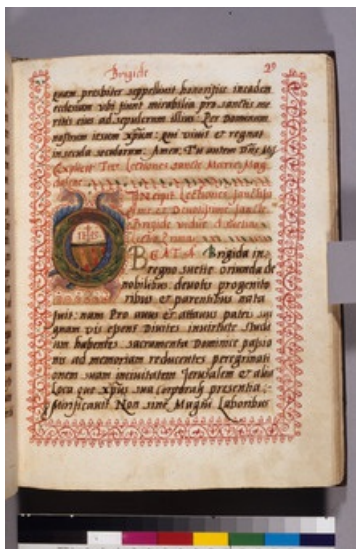 Brigide 29
quam presbiter seppelliuit honorifice in eadem
ecclesiam vbi fiunt mirabilia pro sanctis me
ritis eius ad sepulcrum illius Per Dominum
nostrum iesum xp̄um: qui viuit et regnat
in secula seculorum: Amen. Tu autem
Explicit Lectiones sancte Marie Mag
dalene
Incipit Lectiones
et Deuotissime sancte
Brigide vidue
BEATA Brigida in
regno suetie oriunda de
nobilibus deuotis progenito
ribus et parentibus nata
fuit: nam Pro auus et attauus patris sui
quam vis essent Diuites in virtute studi
um habentes sacramenta Dominice passio
nis ad memoriam reducentes peregrinati
onem suam in ciuitatem Jerusalem et alia
Loca que xp̄us sua corporali presentia
Non sine Magnis Laboribus